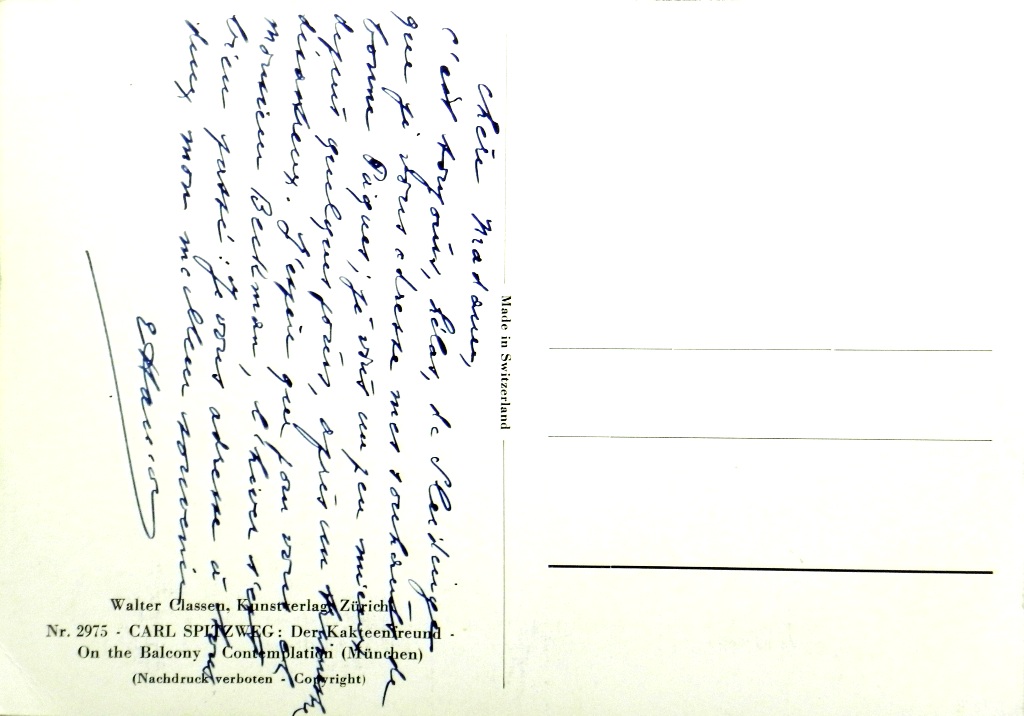 Chère Madame,
c'est toujours, hélas, de Sleidinge
que je vous adresse mes souhaits de
bonne Pâques; je vais un peu mieux
depuis quelques jours, après un
désastreux. J'espère que pour vous et
Monsieur Beckman, l'hiver s'est
bien passé; je vous adresse à tous
deux mon meilleur souvenir
Made in Switzerland
Walter Classen, Kunstverlag, Zürich
Nr. 2975 - CARL SPITZWEG: Der Kakteenfreund -
On the Balcony - Contemplation (München)
(Nachdruck verboten - Copyright)